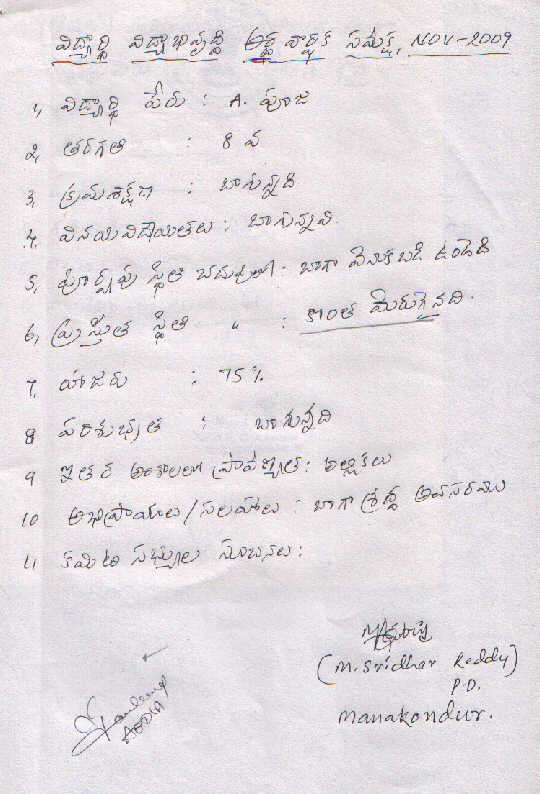 విద్యార్థి విద్యాభివృద్ధి అర్ధ వార్షిక సమీక్ష, NOV-2009
1, విద్యార్థి పేరు : A. పూజ
2, తరగతి : 8 వ
3, క్రమశిక్షణ : బాగున్నది
4, వినయవిధేయతలు : బాగున్నవి.
5, పూర్వపు స్థితి చదువులో : బాగా వెనుకబడి ఉండెడి
6, ప్రస్తుత స్థితి " : కొంత మెరుగైనది.
7, హాజరు : 75%
8 పరిశుభ్రత : బాగున్నది
9 ఇతర అంశాలలో ప్రావీణ్యత : అల్లికలు
10 అభిప్రాయాలు/సలహాలు : బాగా శ్రద్ధ అవసరము
11 కమిటి సభ్యుల సూచనలు :
(M. Sridhar Reddy)
P.D.
Manakondur.